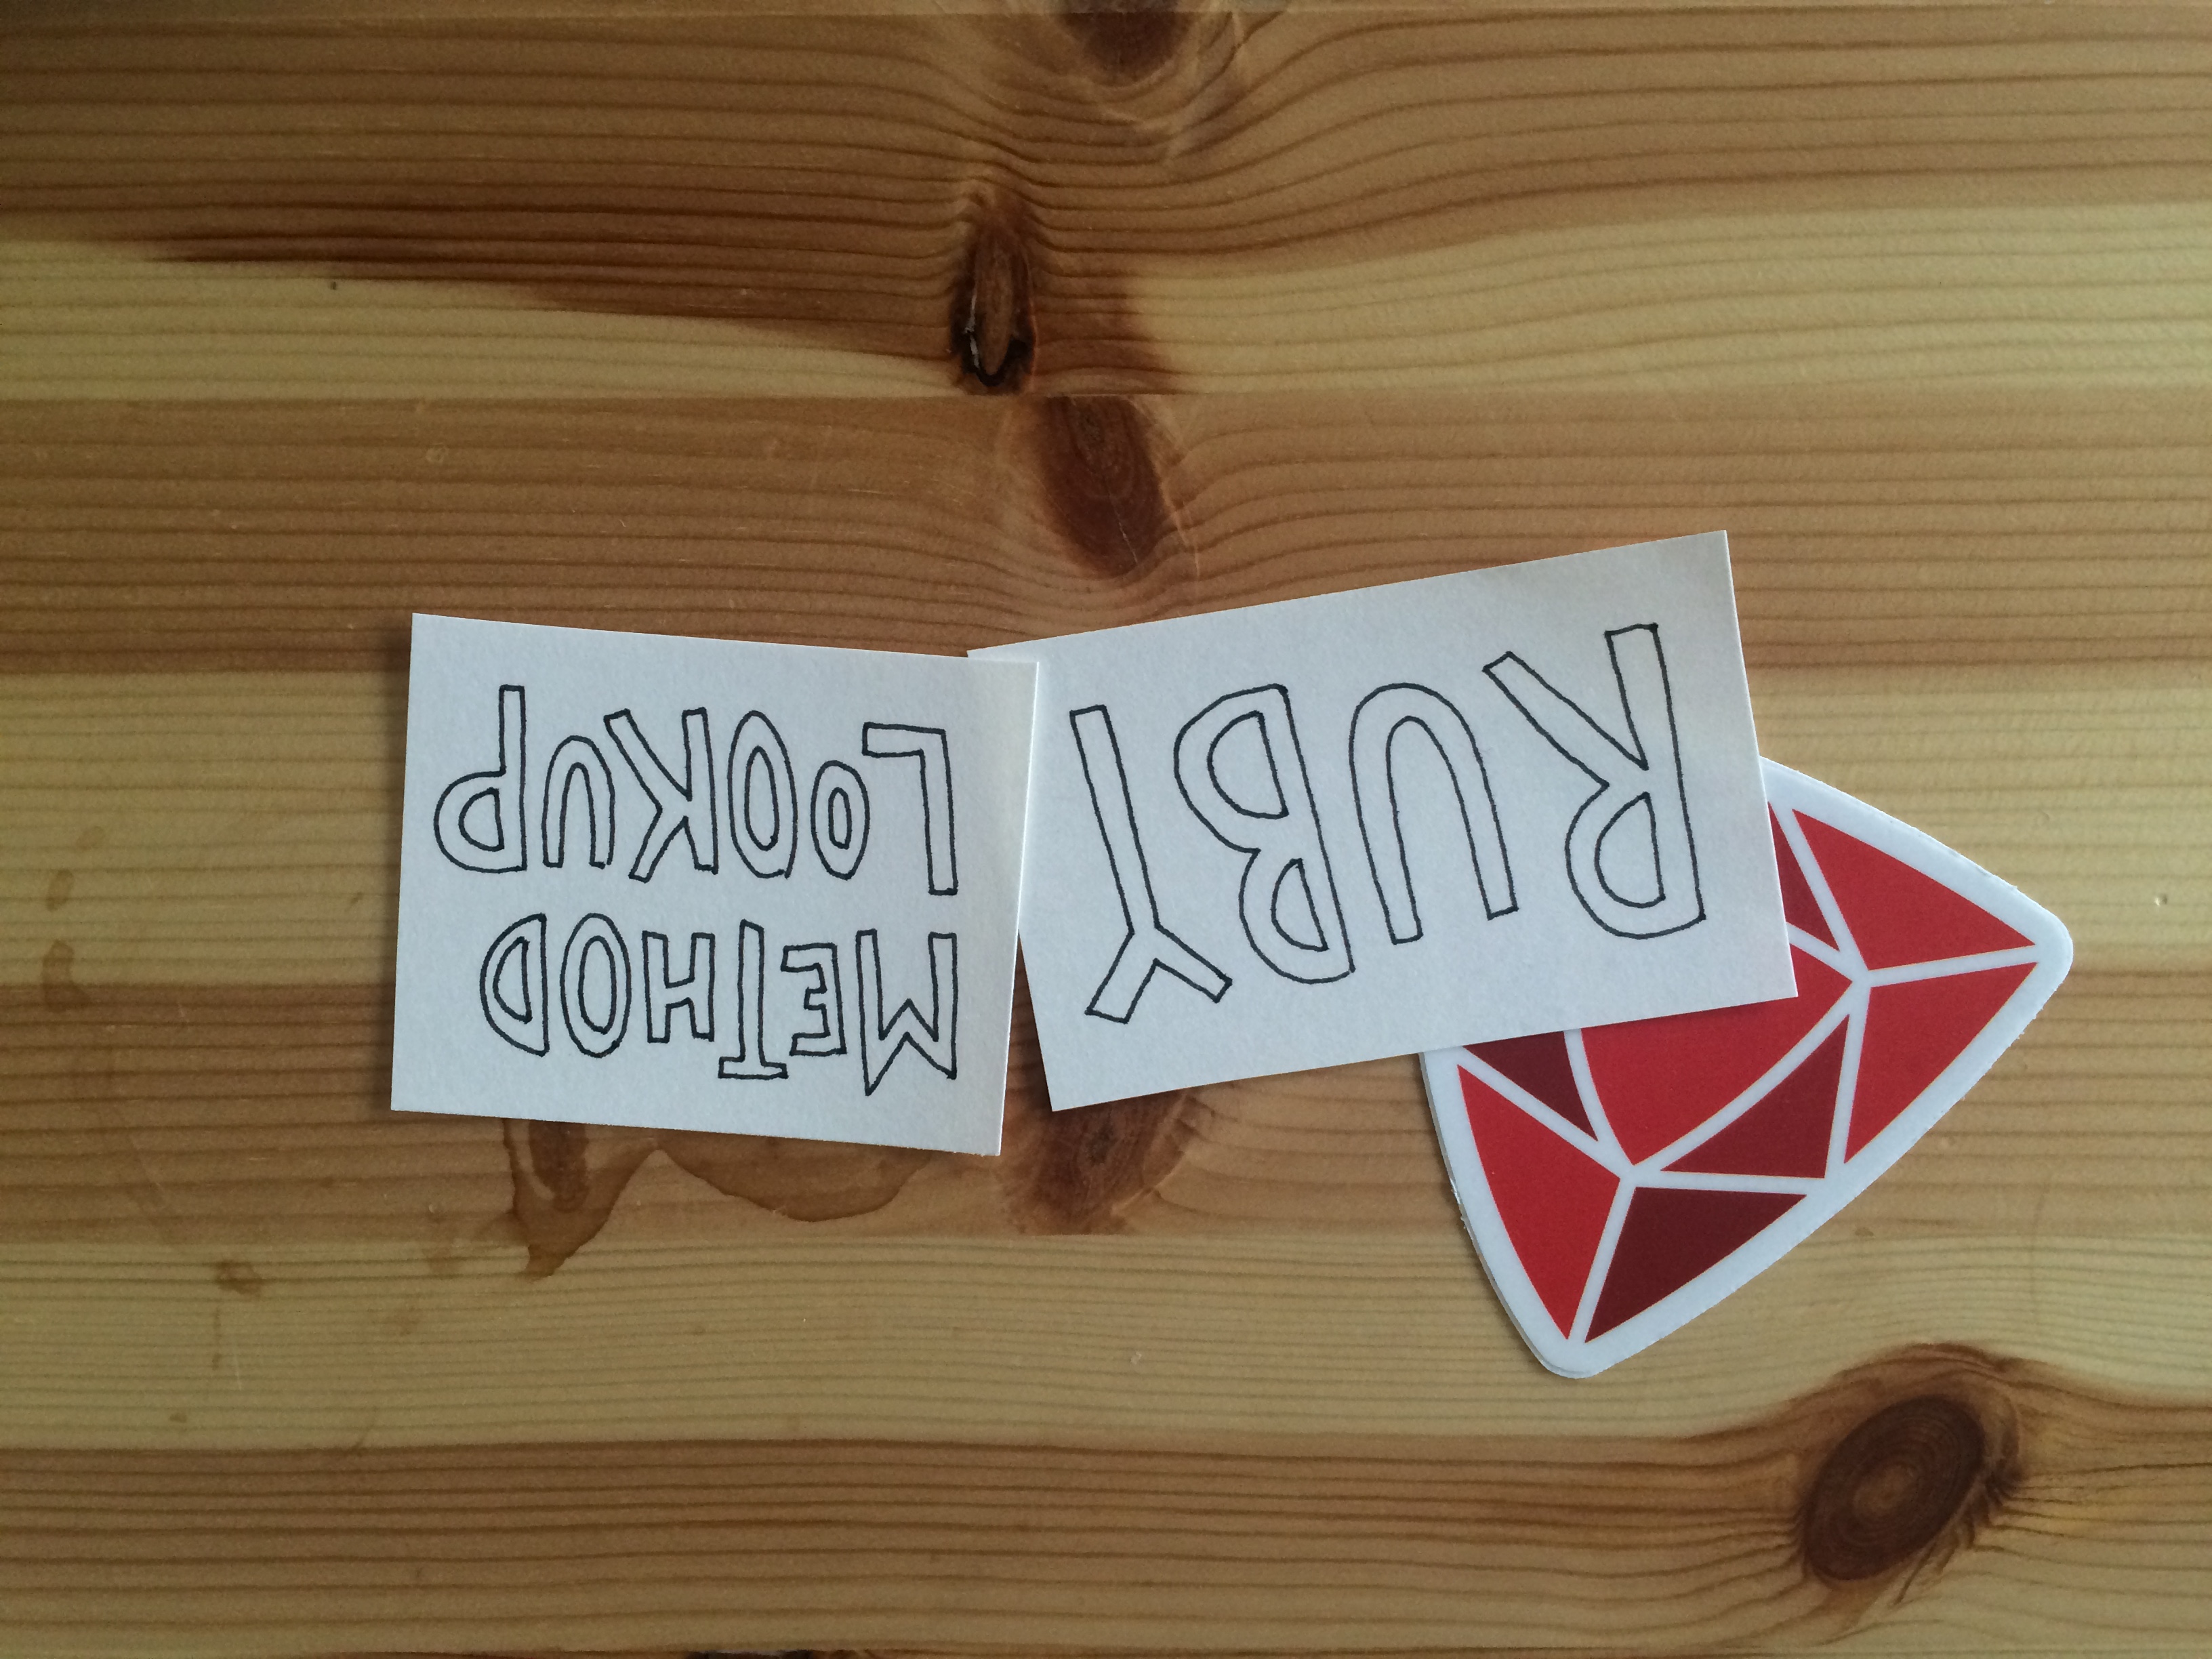 RUBY
METHOD
LOOKUP